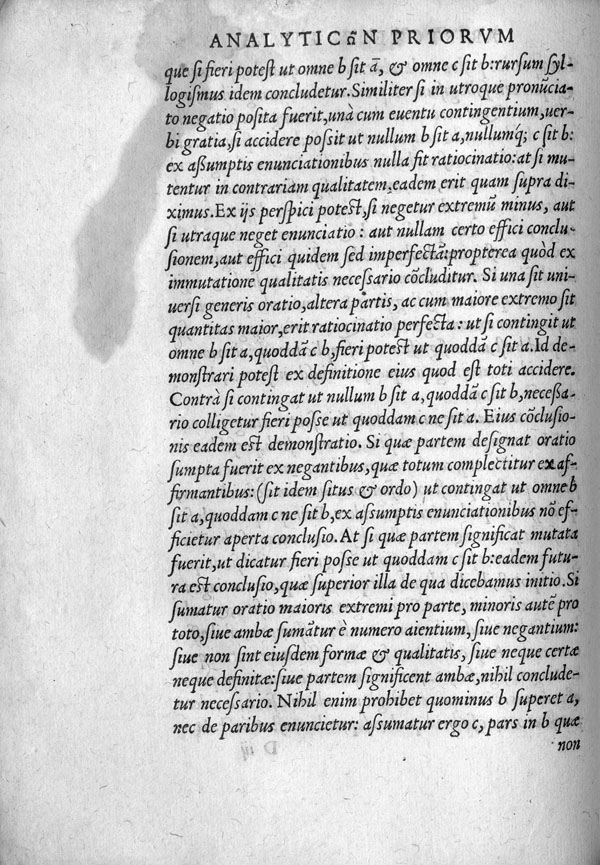 ANALYTICωN PRIORVM
que si fieri potest ut omne b sit ā, & omne c sit b: rursum syl-
logismus idem concludetur. Similiter si in utroque pronūcia-
to negatio posita fuerit, unà cum euentu contingentium, uer-
bi gratia, si accidere possit ut nullum b sit a, nullumq; c sit b:
ex aßumptis enunciationibus nulla fit ratiocinatio: at si mu-
tentur in contrariam qualitatem, eadem erit quam supra di-
ximus. Ex ijs perspici potest, si negetur extremū minus, aut
si utraque neget enunciatio: aut nullam certo effici conclu-
sionem, aut effici quidem sed imperfectā: propterea quòd ex
immutatione qualitatis necessario cōcluditur. Si una sit uni-
uersi generis oratio, altera partis, ac cum maiore extremo sit
quantitas maior, erit ratiocinatio perfecta: ut si contingit ut
omne b sit a, quoddā c b, fieri potest ut quoddā c sit a. Id de-
monstrari potest ex definitione eius quod est toti accidere.
Contrà si contingat ut nullum b sit a, quoddā c sit b, neceßa-
rio colligetur fieri posse ut quoddam c ne sit a. Eius cōclusio-
nis eadem est demonstratio. Si quæ partem designat oratio
sumpta fuerit ex negantibus, quæ totum complectitur ex af-
firmantibus: (sit idem situs & ordo) ut contingat ut omne b
sit a, quoddam c ne sit b, ex assumptis enunciationibus nō ef-
ficietur aperta conclusio. At si quæ partem significat mutata
fuerit, ut dicatur fieri posse ut quoddam c sit b: eadem futu-
ra est conclusio, quæ superior illa de qua dicebamus initio. Si
sumatur oratio maioris extremi pro parte, minoris autē pro
toto, siue ambæ sumātur è numero aientium, siue negantium:
siue non sint eiusdem formæ & qualitatis, siue neque certæ
neque definitæ: siue partem significent ambæ, nihil conclude-
tur necessario. Nihil enim prohibet quominus b superet a,
nec de paribus enuncietur: assumatur ergo c, pars in b quæ
non